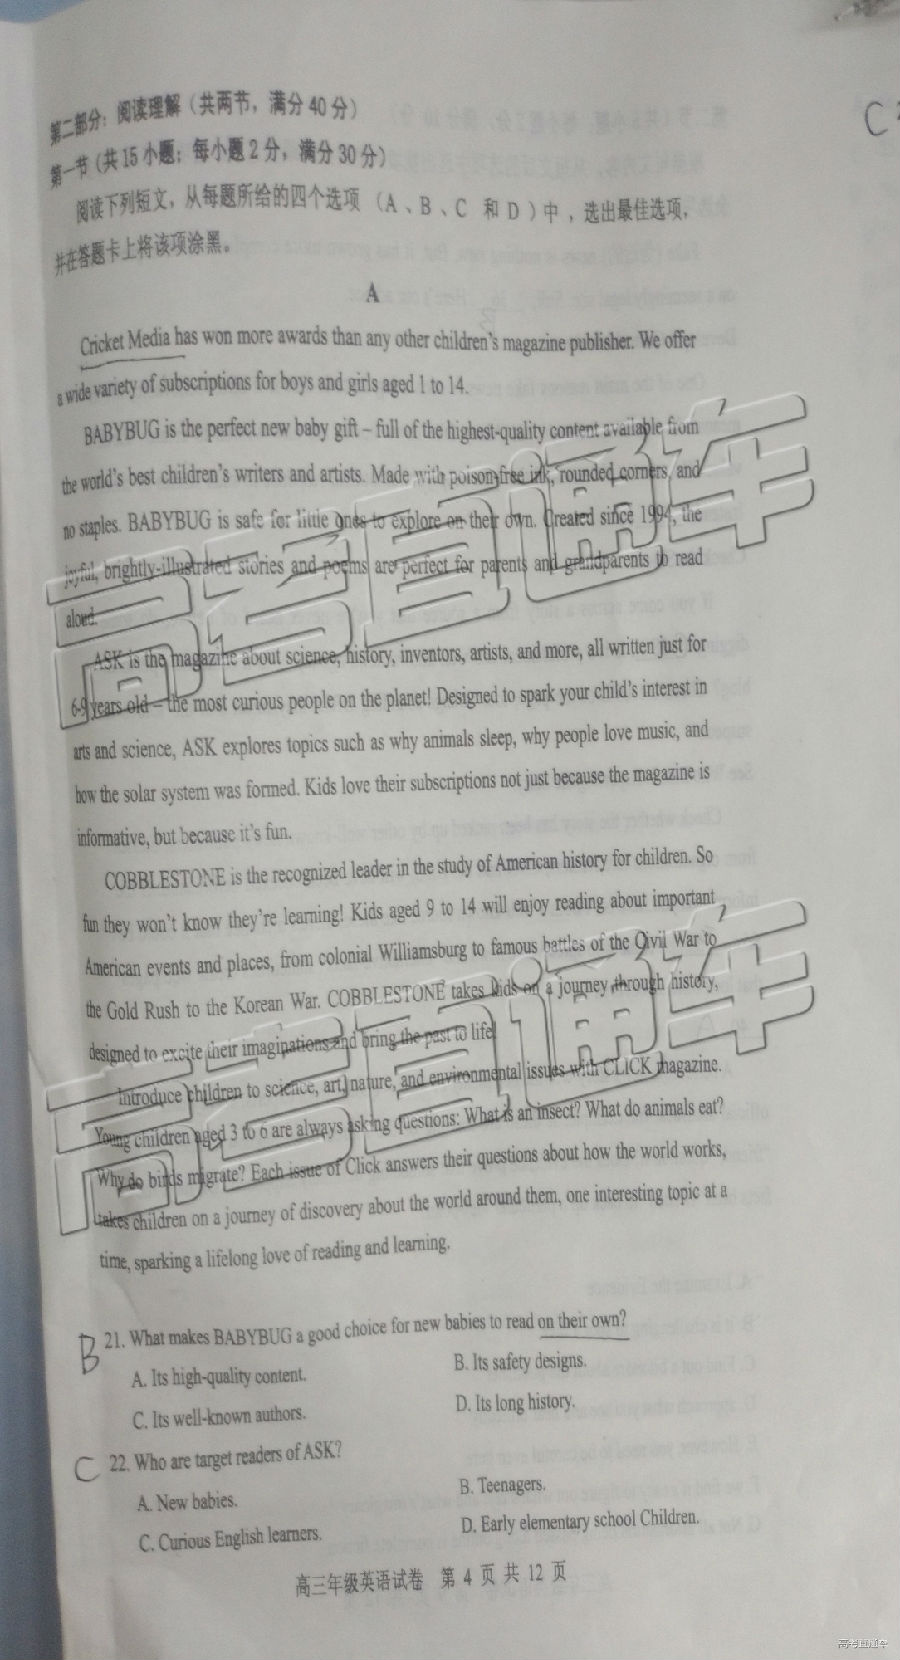 第二部分：阅读理解（共两节，满分 40 分）
第一节（共 15 小题；每小题 2 分，满分 30 分）
阅读下列短文，从每题所给的四个选项（A、B、C 和 D）中，选出最佳选项，
并在答题卡上将该项涂黑。
A
Cricket Media has won more awards than any other children's magazine publisher. We offer
a wide variety of subscriptions for boys and girls aged 1 to 14.
BABYBUG is the perfect new baby gift – full of the highest-quality content available from
the world's best children's writers and artists. Made with poison-free ink, rounded corners, and
no staples. BABYBUG is safe for little ones to explore on their own. Created since 1994, the
joyful, brightly-illustrated stories and poems are perfect for parents and grandparents to read
aloud.
ASK is the magazine about science, history, inventors, artists, and more, all written just for
6-9 years old – the most curious people on the planet! Designed to spark your child's interest in
arts and science, ASK explores topics such as why animals sleep, why people love music, and
how the solar system was formed. Kids love their subscriptions not just because the magazine is
informative, but because it's fun.
COBBLESTONE is the recognized leader in the study of American history for children. So
fun they won't know they're learning! Kids aged 9 to 14 will enjoy reading about important
American events and places, from colonial Williamsburg to famous battles of the Civil War to
the Gold Rush to the Korean War. COBBLESTONE takes kids on a journey through history,
designed to excite their imaginations and bring the past to life.
Introduce children to science, art, nature, and environmental issues with CLICK magazine.
Young children aged 3 to 6 are always asking questions: What is an insect? What do animals eat?
Why do birds migrate? Each issue of Click answers their questions about how the world works,
takes children on a journey of discovery about the world around them, one interesting topic at a
time, sparking a lifelong love of reading and learning.
B 21. What makes BABYBUG a good choice for new babies to read on their own?
A. Its high-quality content. B. Its safety designs.
C. Its well-known authors. D. Its long history.
C 22. Who are target readers of ASK?
A. New babies. B. Teenagers.
C. Curious English learners. D. Early elementary school Children.
高三年级英语试卷 第 4 页 共 12 页
C
高考直通车
高考直通车
高考直通车